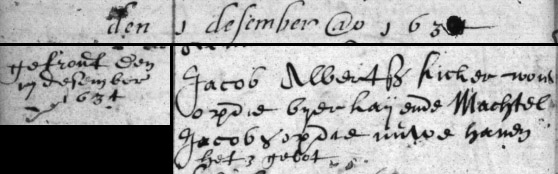 den 1 desember @o 163
getrout den
17 desember
1634
Jacob Albertsz kicker won
opdie byerkaij ende Machtel
Jacobs opdie niwe haven
het 3 gebot